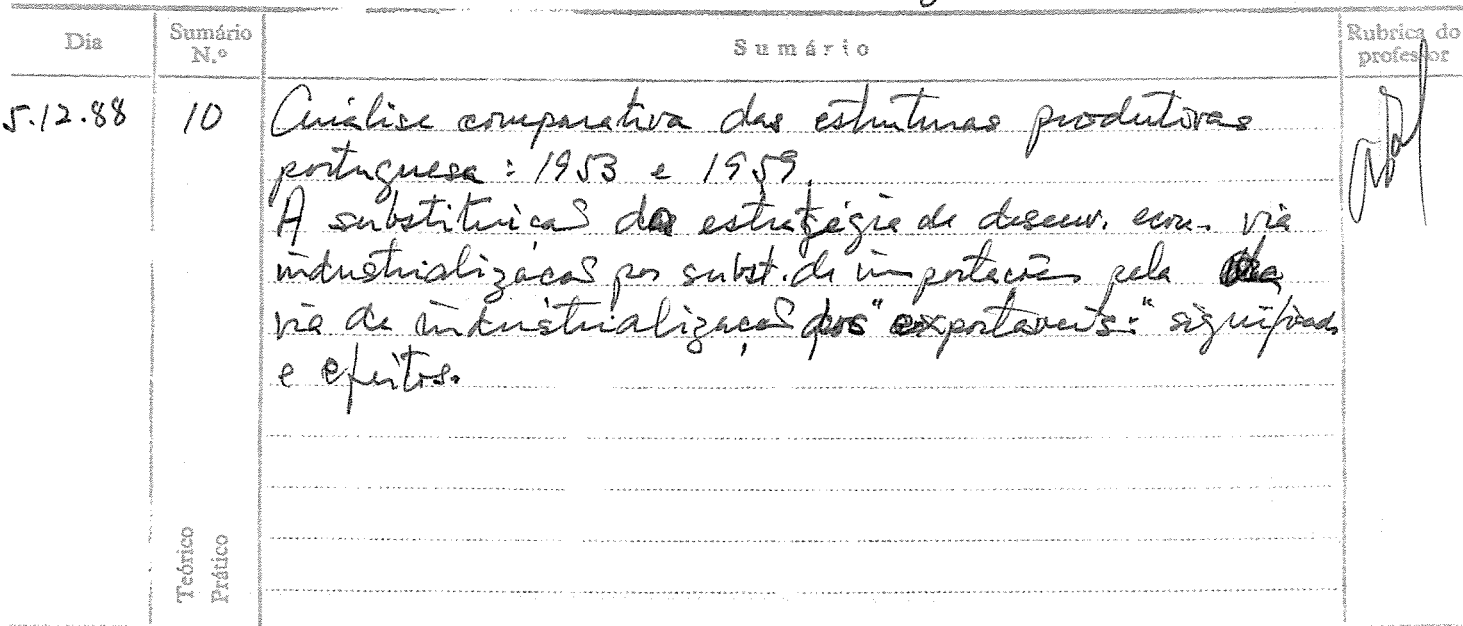 Dia Sumário N.º Sumário Rubrica do professor
5.12.88 10 Análise comparativa das estruturas produtivas
portuguesa : 1953 e 1959.
A substituição da estratégia de desenv. econ. via
industrialização por subst. de importações pela
via da industrialização dos "exportáveis": significado
e efeitos.
Teórico
Prático